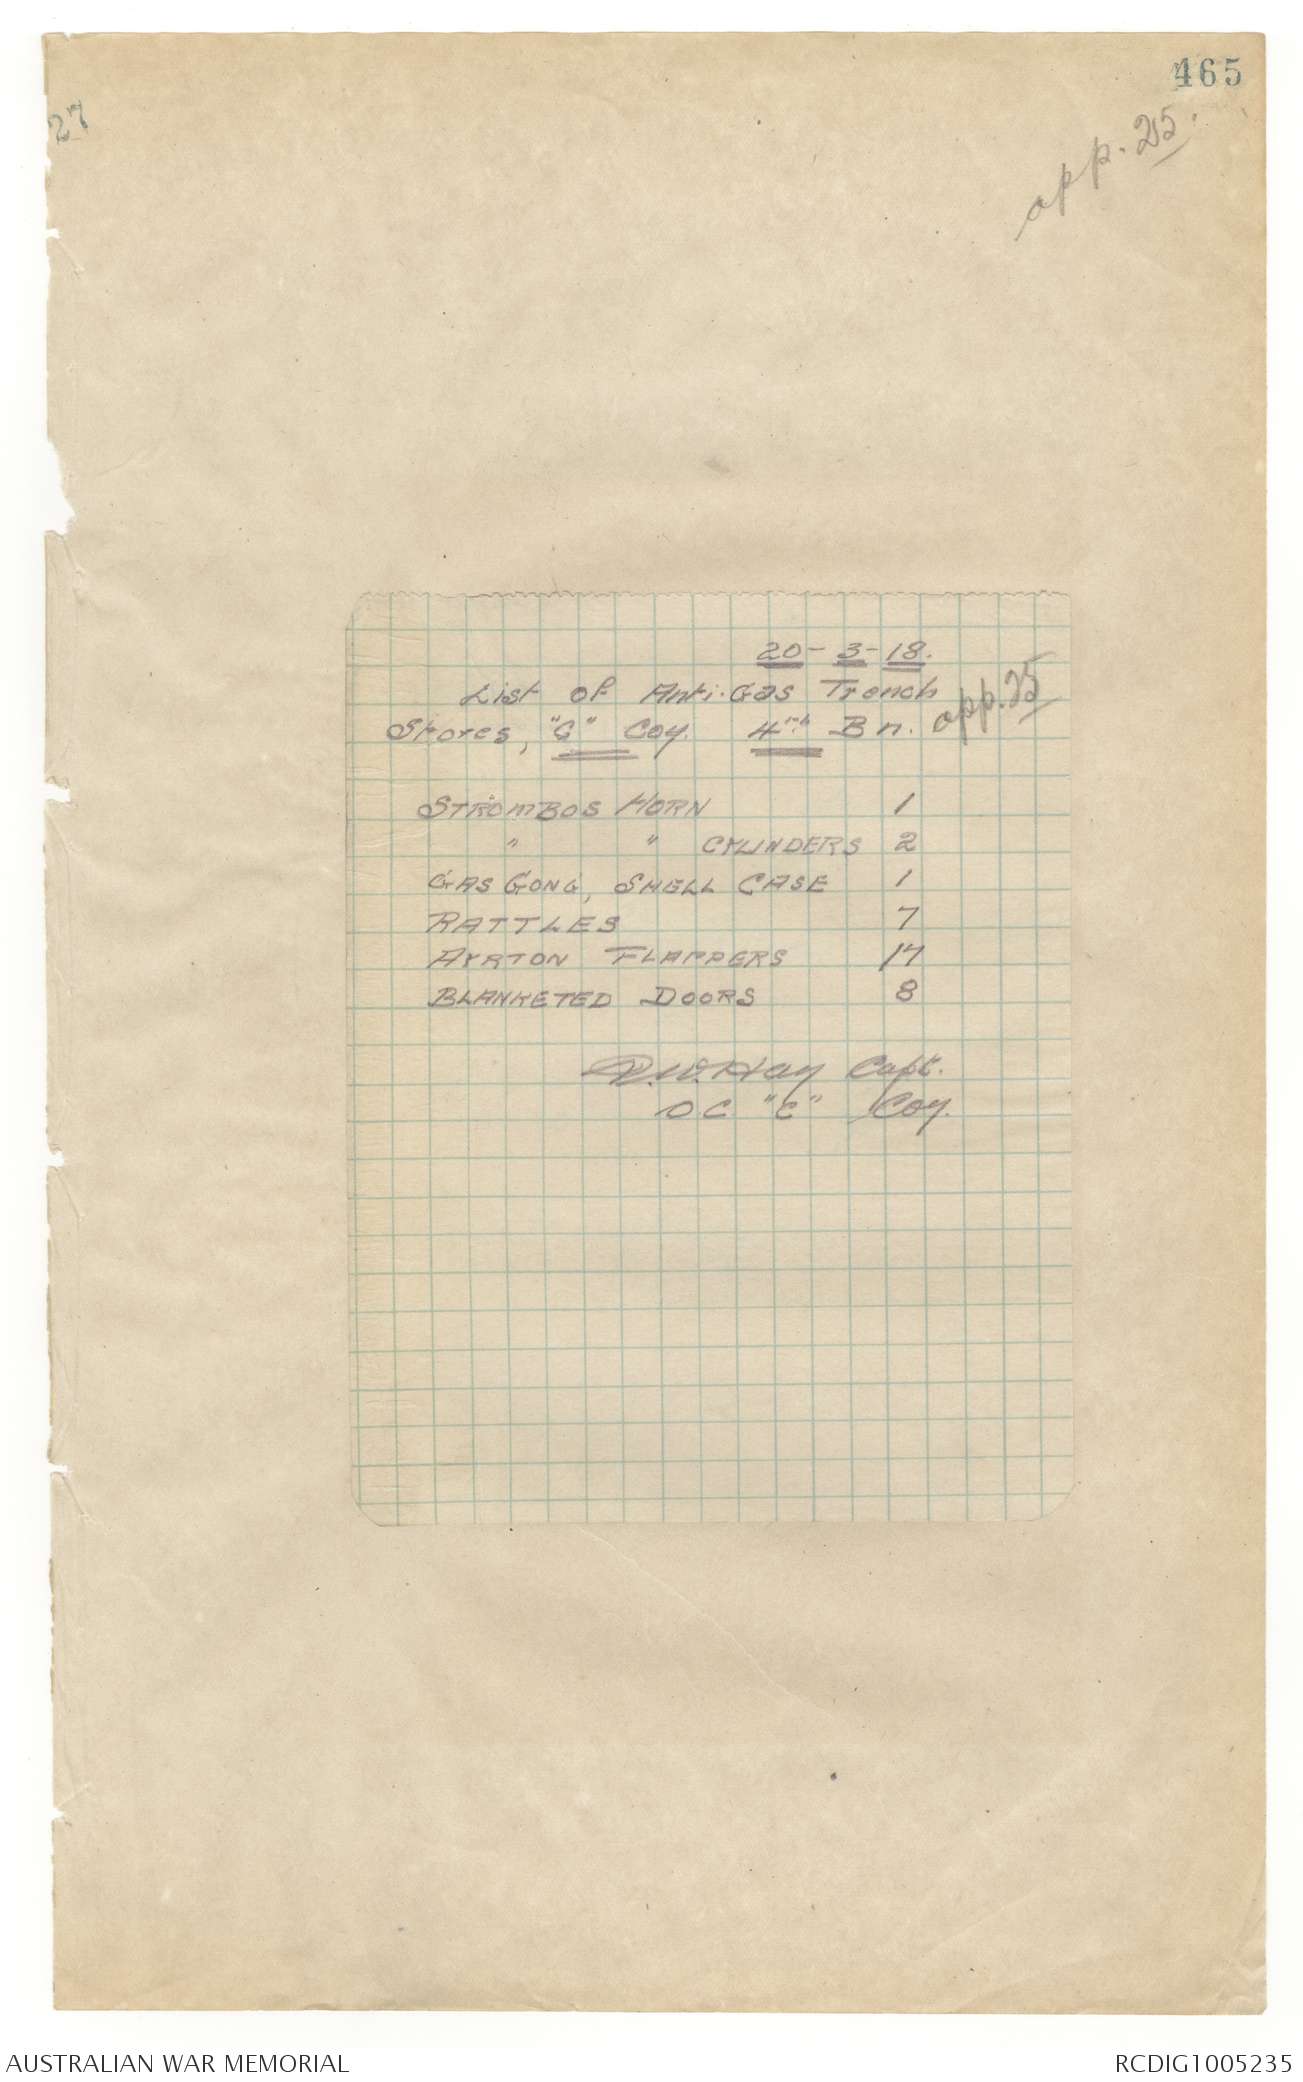 465
27
app. 25.
20-3-18.
List of Anti-Gas Trench
Stores, "C" Coy. 4th Bn. app. 25
STROMBOS HORN 1
" " CYLINDERS 2
GAS GONG, SHELL CASE 1
RATTLES 7
AYRTON FLAPPERS 17
BLANKETED DOORS 8
W. Hay Capt.
O.C. "C" Coy.
AUSTRALIAN WAR MEMORIAL
RCDIG1005235